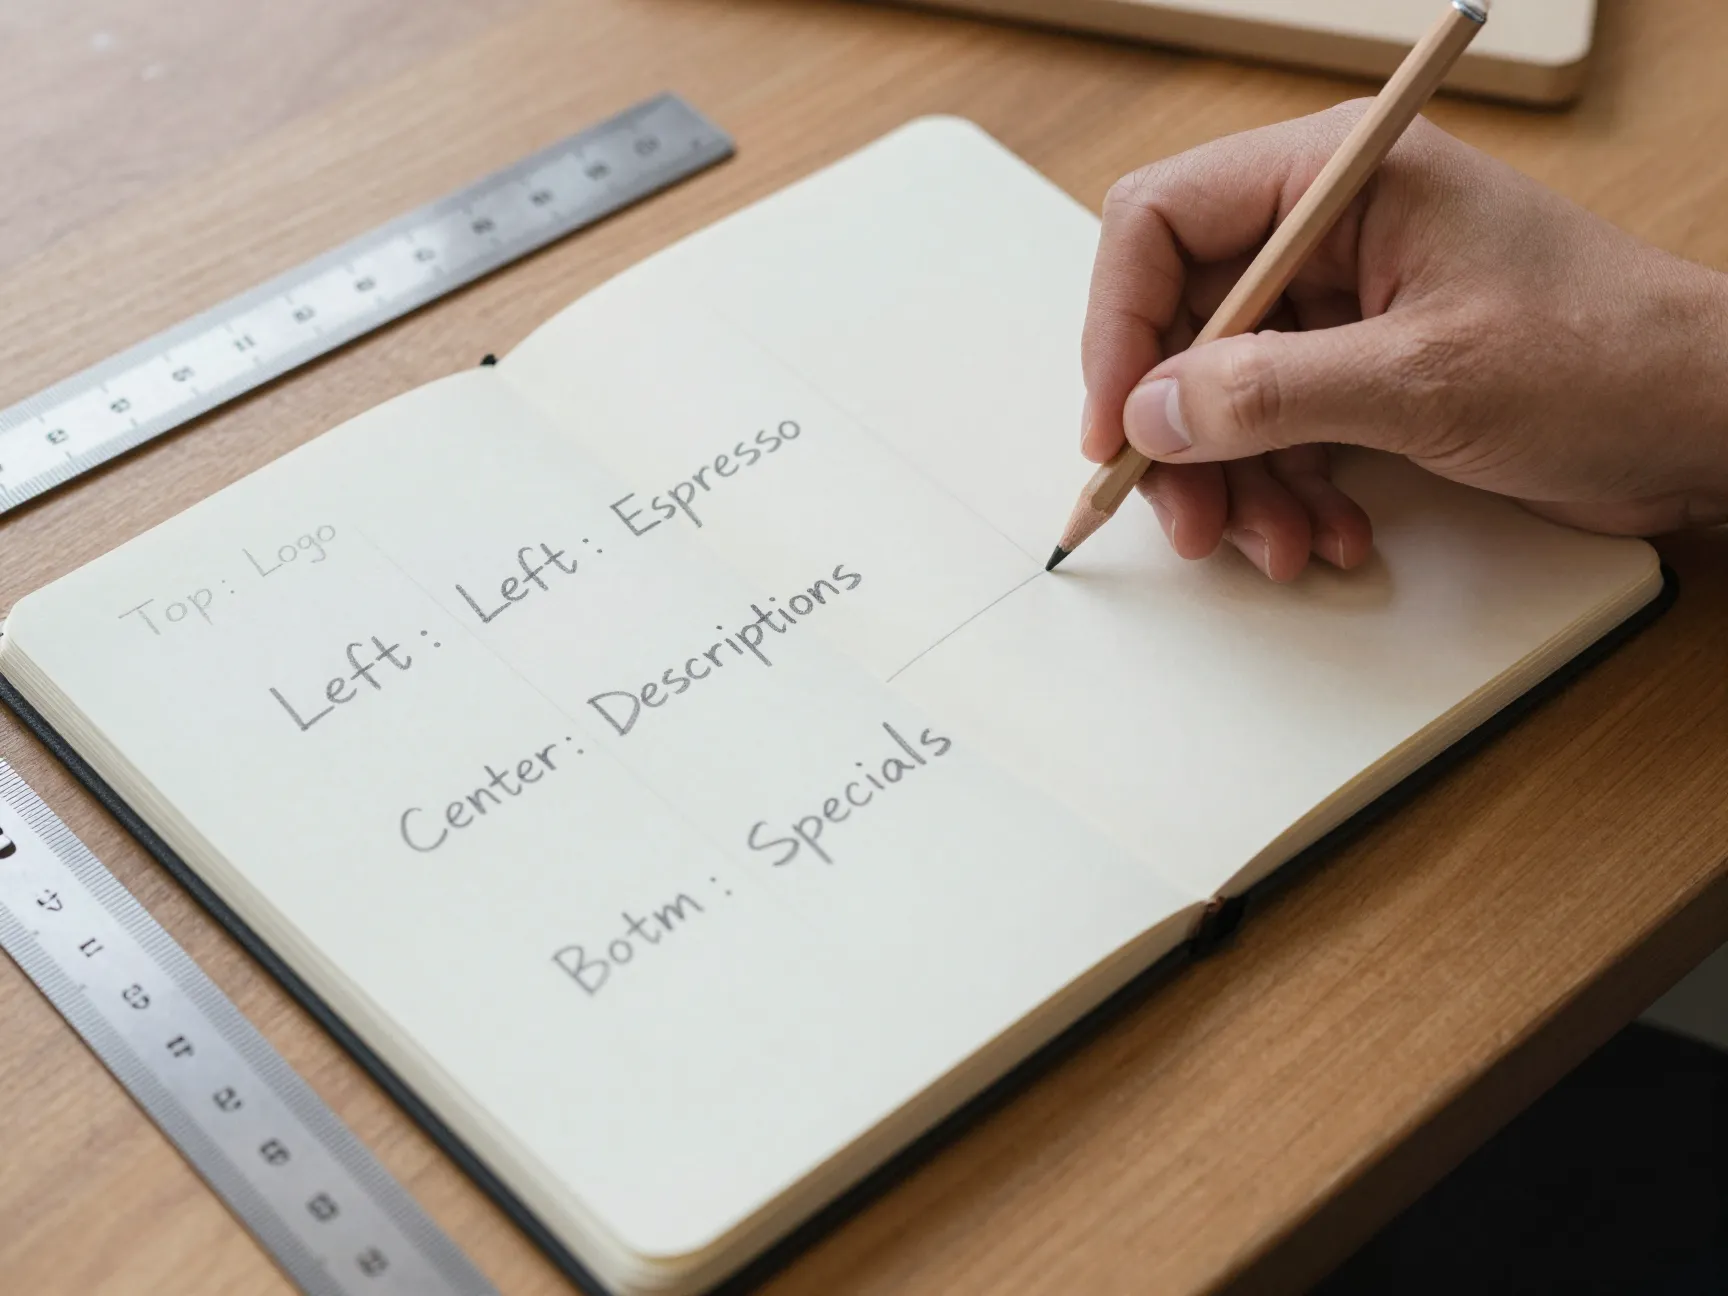 Top: Logo
Left: Left: Espresso
Center: Descriptions
Botm: Specials